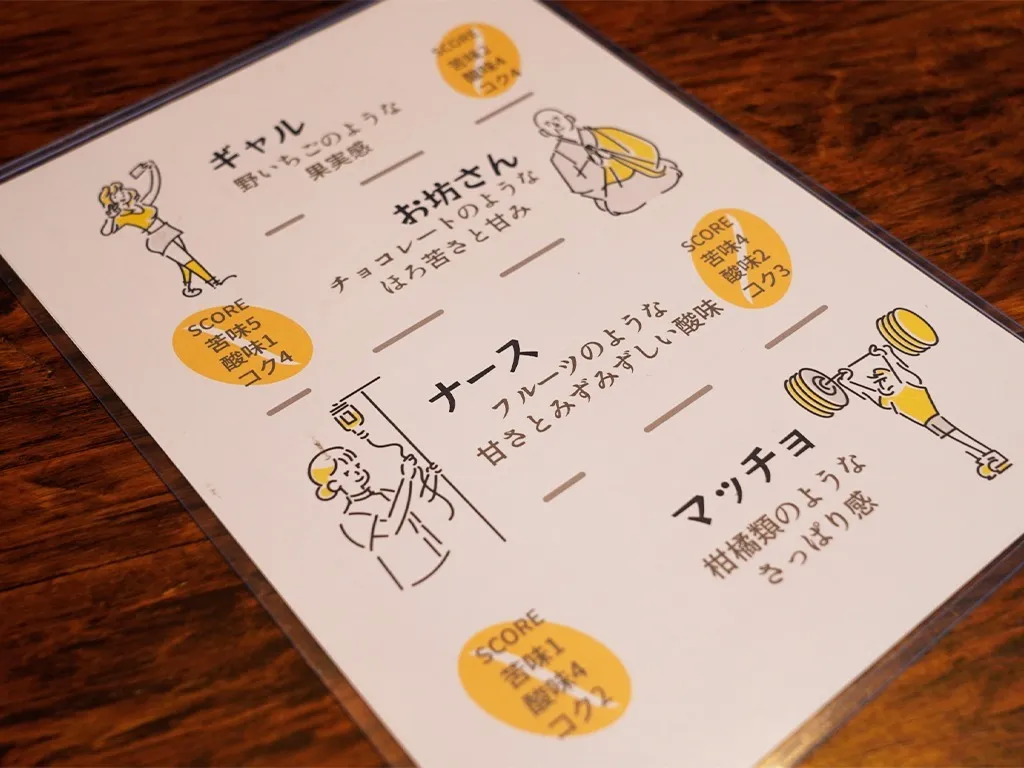 ギャル
野いちごのような
果実感
SCORE
苦味
酸味4
コク4
お坊さん
チョコレートのような
ほろ苦さと甘み
SCORE
苦味5
酸味1
コク4
ナース
フルーツのような
甘さとみずみずしい酸味
SCORE
苦味4
酸味2
コク3
マッチョ
柑橘類のような
さっぱり感
SCORE
苦味1
酸味4
コク2